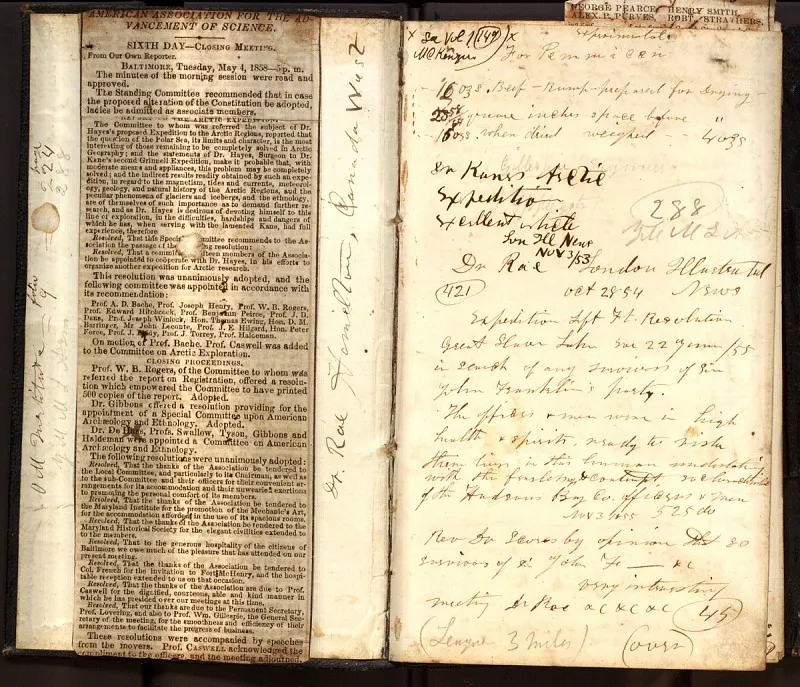 AMERICAN ASSOCIATION FOR THE AD-
VANCEMENT OF SCIENCE.
SIXTH DAY—CLOSING MEETING.
From Our Own Reporter.
BALTIMORE, Tuesday, May 4, 1858—5 p. m.
The minutes of the morning session were read and
approved.
The Standing Committee recommended that in case
the proposed alteration of the Constitution be adopted,
ladies be admitted as associate members.
THE ARCTIC EXPEDITION.
The Committee to whom was referred the subject of Dr.
Hayes's proposed Expedition to the Arctic Regions, reported that
the question of the Polar Sea, its limits and character, is the most
interesting of those remaining to be completely solved in Arctic
Geography; and the statements of Dr. Hayes, Surgeon to Dr.
Kane's second Grinnell Expedition, make it probable that, with
moderate means and appliances, this problem may be completely
solved; and the indirect results readily obtained by such an expe-
dition, in regard to the magnetism, tides and currents, meteorol-
ogy, geology, and natural history of the Arctic Regions, and the
peculiar phenomena of glaciers and icebergs, and the ethnology,
are of themselves of such importance as to demand further re-
search, and as Dr. Hayes is desirous of devoting himself to this
line of exploration, in the difficulties, hardships and dangers of
which he has, when serving with the lamented Kane, had full
experience, therefore
Resolved, That this Special Committee recommends to the As-
sociation the passage of the following resolution:
Resolved, That a committee of fifteen members of the Associa-
tion be appointed to coöperate with Dr. Hayes, in his efforts to
organize another expedition for Arctic research.
This resolution was unanimously adopted, and the
following committee was appointed in accordance with
its recommendation:
Prof. A. D. Bache, Prof. Joseph Henry, Prof. W. B. Rogers,
Prof. Edward Hitchcock, Prof. Benjamin Peirce, Prof. J. D.
Dana, Prof. Joseph Winlock, Hon. Thomas Ewing, Hon. D. M.
Barringer, Mr. John Leconte, Prof. J. E. Hilgard, Hon. Peter
Force, Prof. J. Leidy, Prof. J. Torrey, Prof. Haldeman.
On motion of Prof. Bache, Prof. Caswell was added
to the Committee on Arctic Exploration.
CLOSING PROCEEDINGS.
Prof. W. B. Rogers, of the Committee to whom was
referred the report on Registration, offered a resolu-
tion which empowered the Committee to have printed
500 copies of the report. Adopted.
Dr. Gibbons offered a resolution providing for the
appointment of a Special Committee upon American
Archæology and Ethnology. Adopted.
Dr. De Haas, Profs. Swallow, Tyson, Gibbons and
Haldeman were appointed a Committee on American
Archæology and Ethnology.
The following resolutions were unanimously adopted:
Resolved, That the thanks of the Association be tendered to
the Local Committee, and particularly to its Chairman, as well as
to the sub-Committee and their officers for their convenient ar-
rangements for its accommodation and their unwearied exertions
to promoting the personal comfort of its members.
Resolved, That the thanks of the Association be tendered to
the Maryland Institute for the promotion of the Mechanic's Art,
for the accommodation afforded in the use of its spacious rooms.
Resolved, That the thanks of the Association be tendered to the
Maryland Historical Society for the elegant civilities extended to
to the members.
Resolved, That to the generous hospitality of the citizens of
Baltimore we owe much of the pleasure that has attended on our
present meeting.
Resolved, That the thanks of the Association be tendered to
Col. French for the invitation to Fort McHenry, and the hospi-
table reception extended to us on that occasion.
Resolved, That the thanks of the Association are due to Prof.
Caswell for the dignified, courteous, able and kind manner in
which he has presided over our meetings at this time.
Resolved, That our thanks are due to the Permanent Secretary,
Prof. Lovering, and also to Prof. Wm. Gillespie, the General Sec-
retary of the meeting, for the smoothness and efficiency of their
arrangements to facilitate the progress of business.
These resolutions were accompanied by speeches
from the movers. Prof. CASWELL acknowledged the
compliment to the officers, and the meeting adjourned.
page 224
288
Dr. Rae Hamilton, Canada West
GEORGE PEARCE, HENRY SMITH,
ALEX. P. PURVES, ROBT. STRATHERS.
x See Vol 1 (149) x
McKenzie
For Pemmican
16 ozs. Beef - Rump prepared for drying -
square inches space before "
16 ozs. when dried weighed - 4 ozs
Dr Kanes Arctic
Expedition
Excellent article
Lon Ill News
Nov 3/53
288
Dr Rae London Illustrated
(421) Oct 28-54 News
Expedition left Ft. Resolution
Great Slave Lake 22 June/55
in search of any survivors of Sir
John Franklin's party.
The officers & men were in high
health & spirits, ready to risk
their lives in this human
with the
of the Hudsons Bay Co. officers & men
Nov 3 1855 525 do
Rev Dr Scoresby opinion that so
survivors of Sir John F — &c
very interesting
meeting Dr Rae &c &c &c (45)
(League 3 miles) (over)